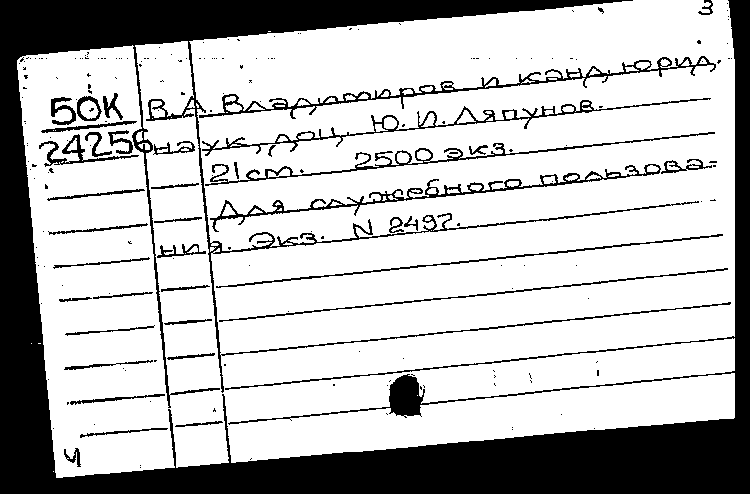 3
50К В.А. Владимиров и канд. юрид.
24256 наук, доц. Ю.И. Ляпунов.
21 см. 2500 экз.
Для служебного пользова-
ния. Экз. N 2497.